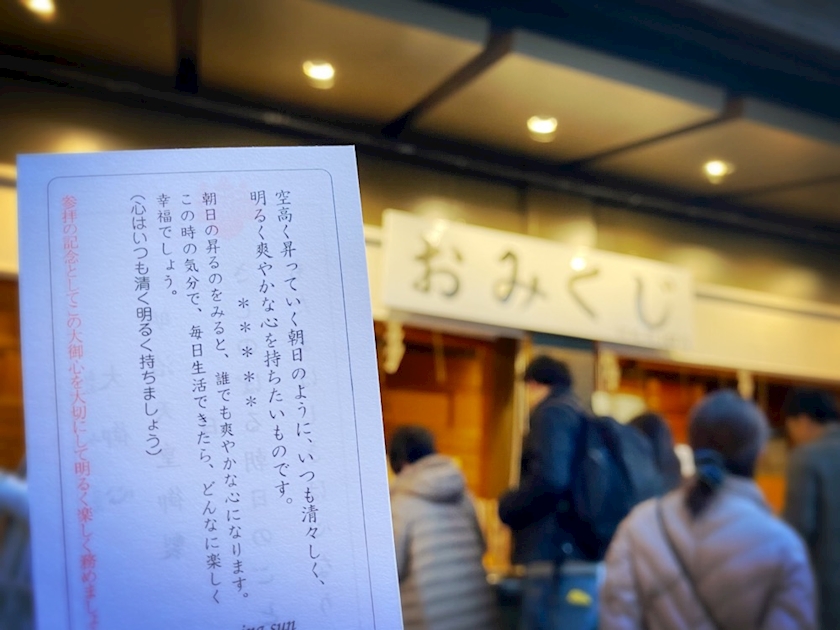 空高く昇っていく朝日のように、いつも清々しく、
明るく爽やかな心を持ちたいものです。
＊＊＊＊＊
朝日の昇るのをみると、誰でも爽やかな心になります。
この時の気分で、毎日生活できたら、どんなに楽しく
幸福でしょう。
(心はいつも清く明るく持ちましょう)
参拝の記念としてこの大御心を大切にして明るく楽しく務めましょ
sun
おみくじ